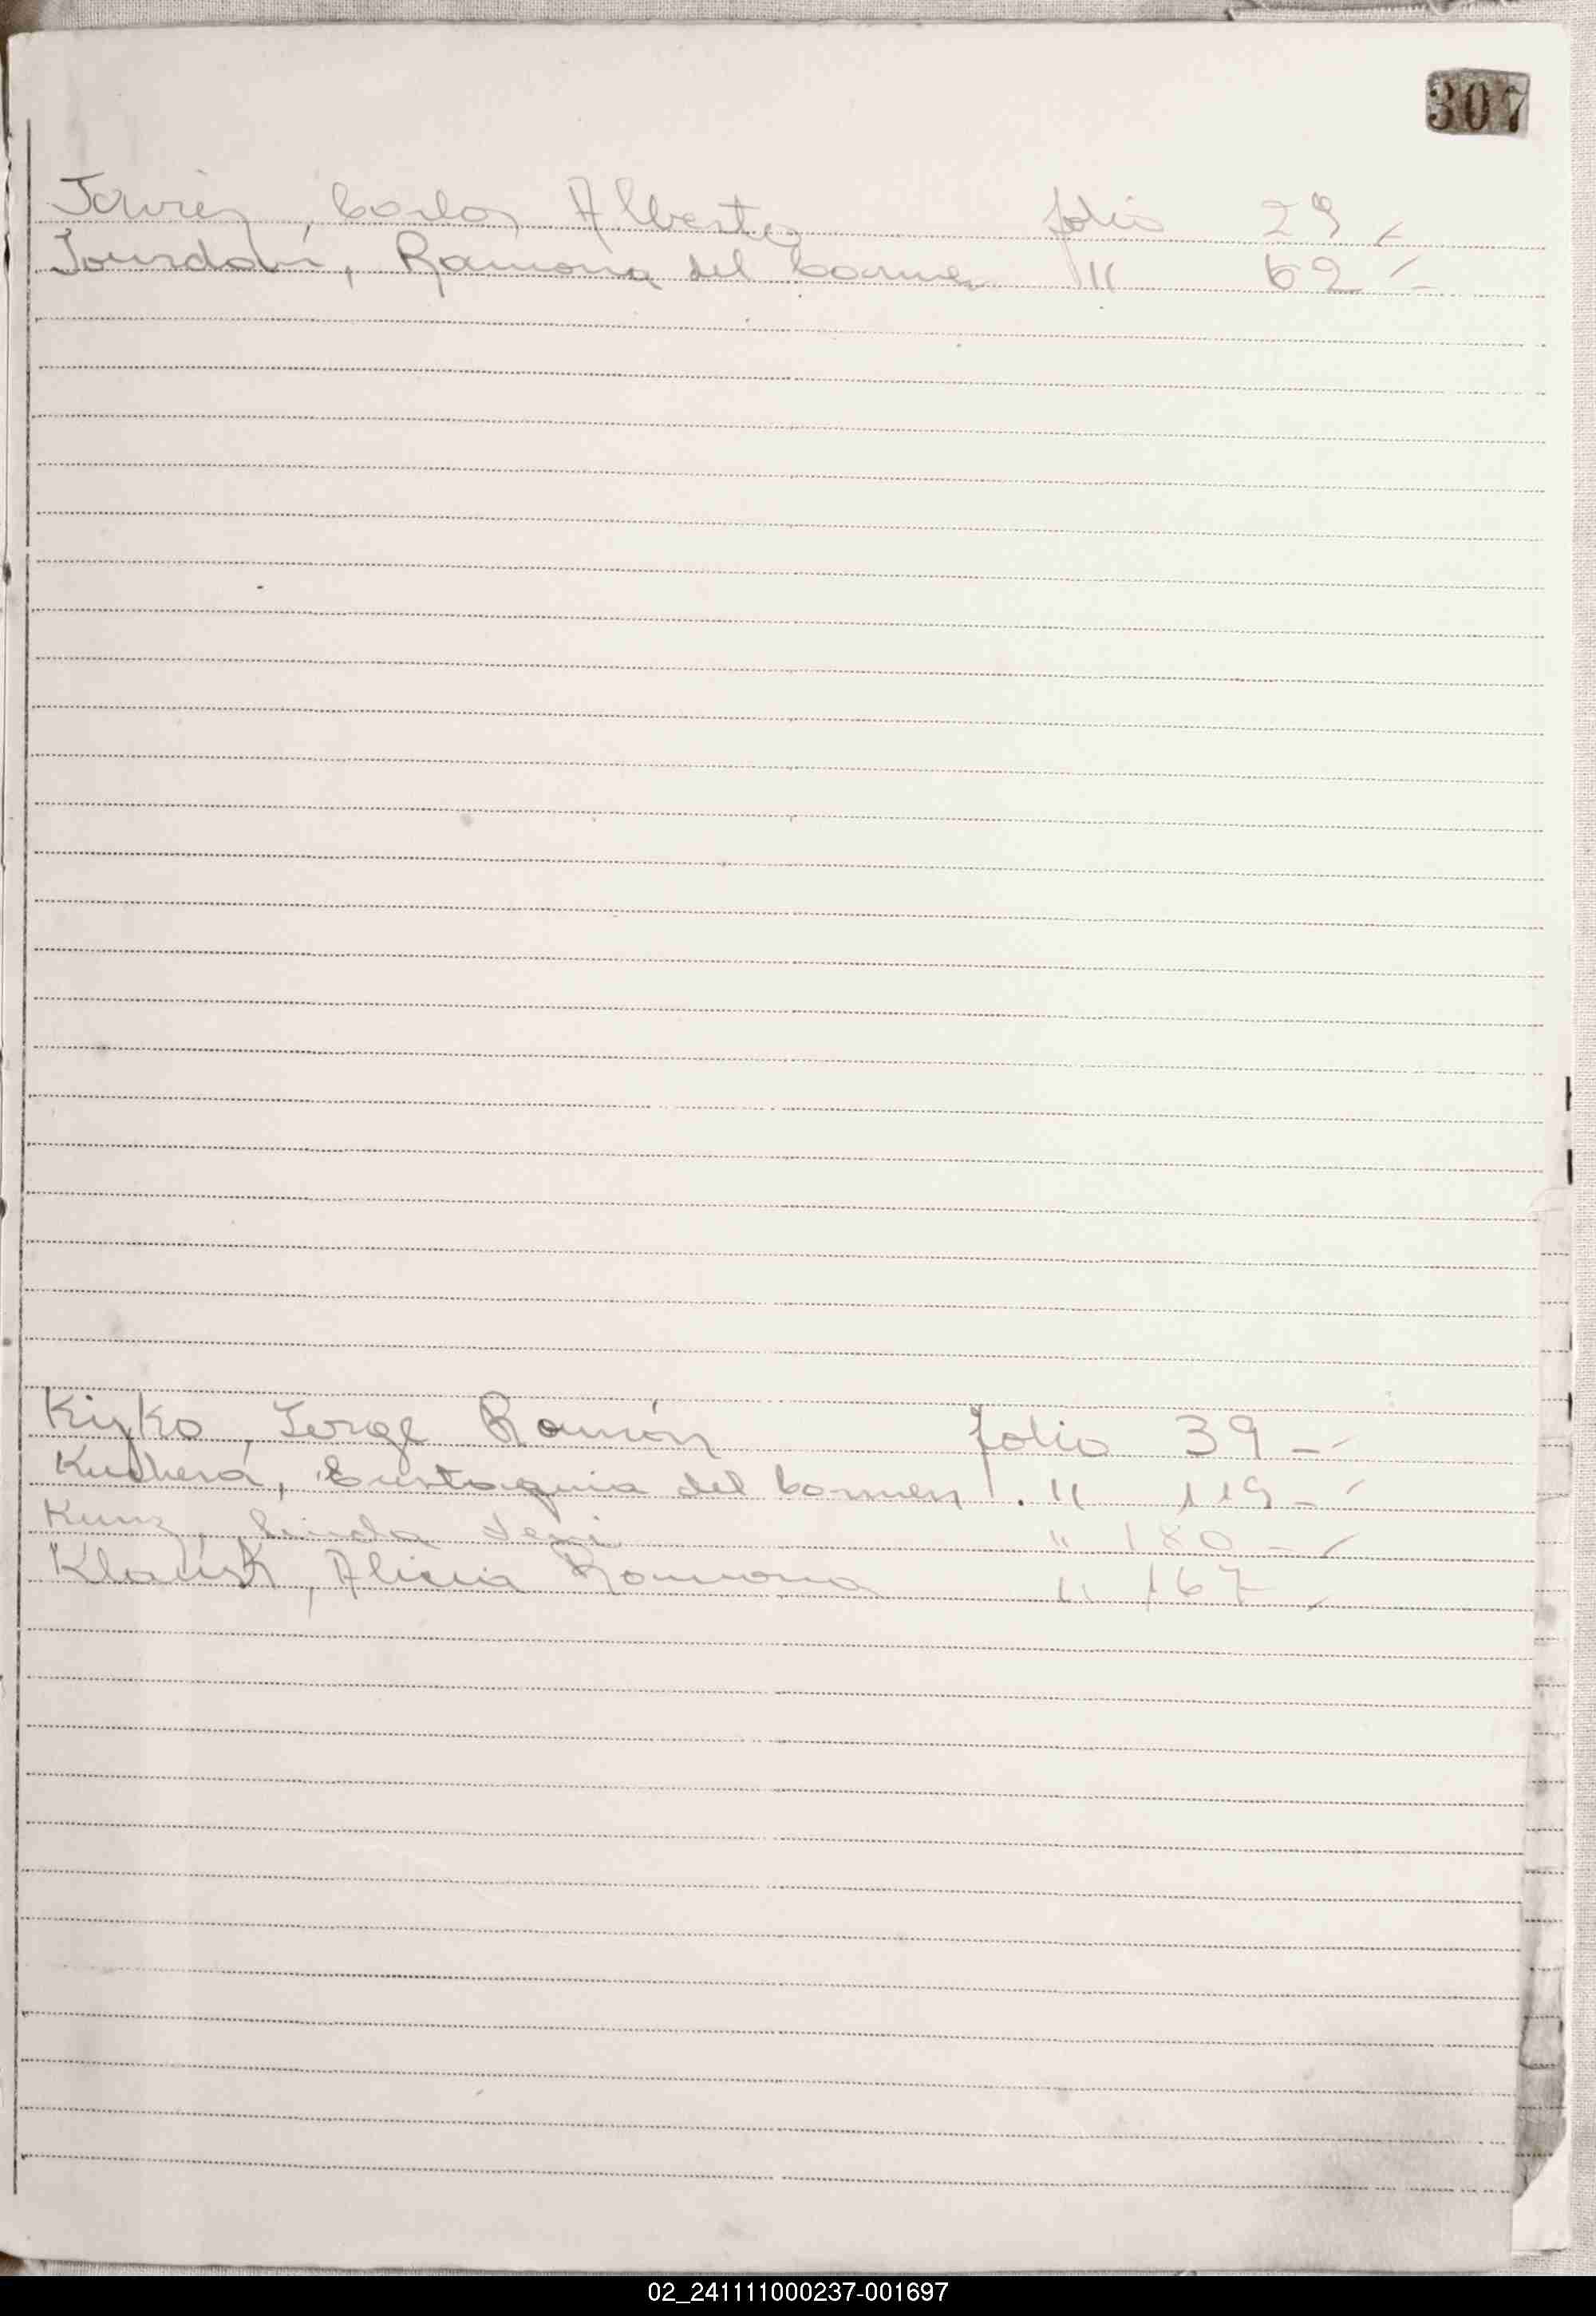 307
Javier, Carlos Alberto folio 29 -
Jourdan, Ramona del Carmen " 62 -
Kiyko, Jorge Ramón folio 39 -
Kuchera, Eustaquia del Carmen . " 119 -
Kunz, Linda " 180 -
Alicia Ramona " 167 -
02_241111000237-001697